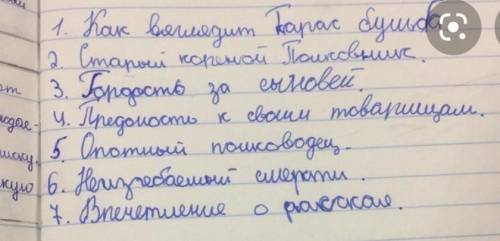 1. Как выглядит Тарас Бульба
2. Старый кореной Полковник.
3. Гордость за сыновей.
4. Предоность к своим товарищам.
5. Опотный полководец.
6. Неизгебаемый смерти.
7. Впечетление о рассказе.